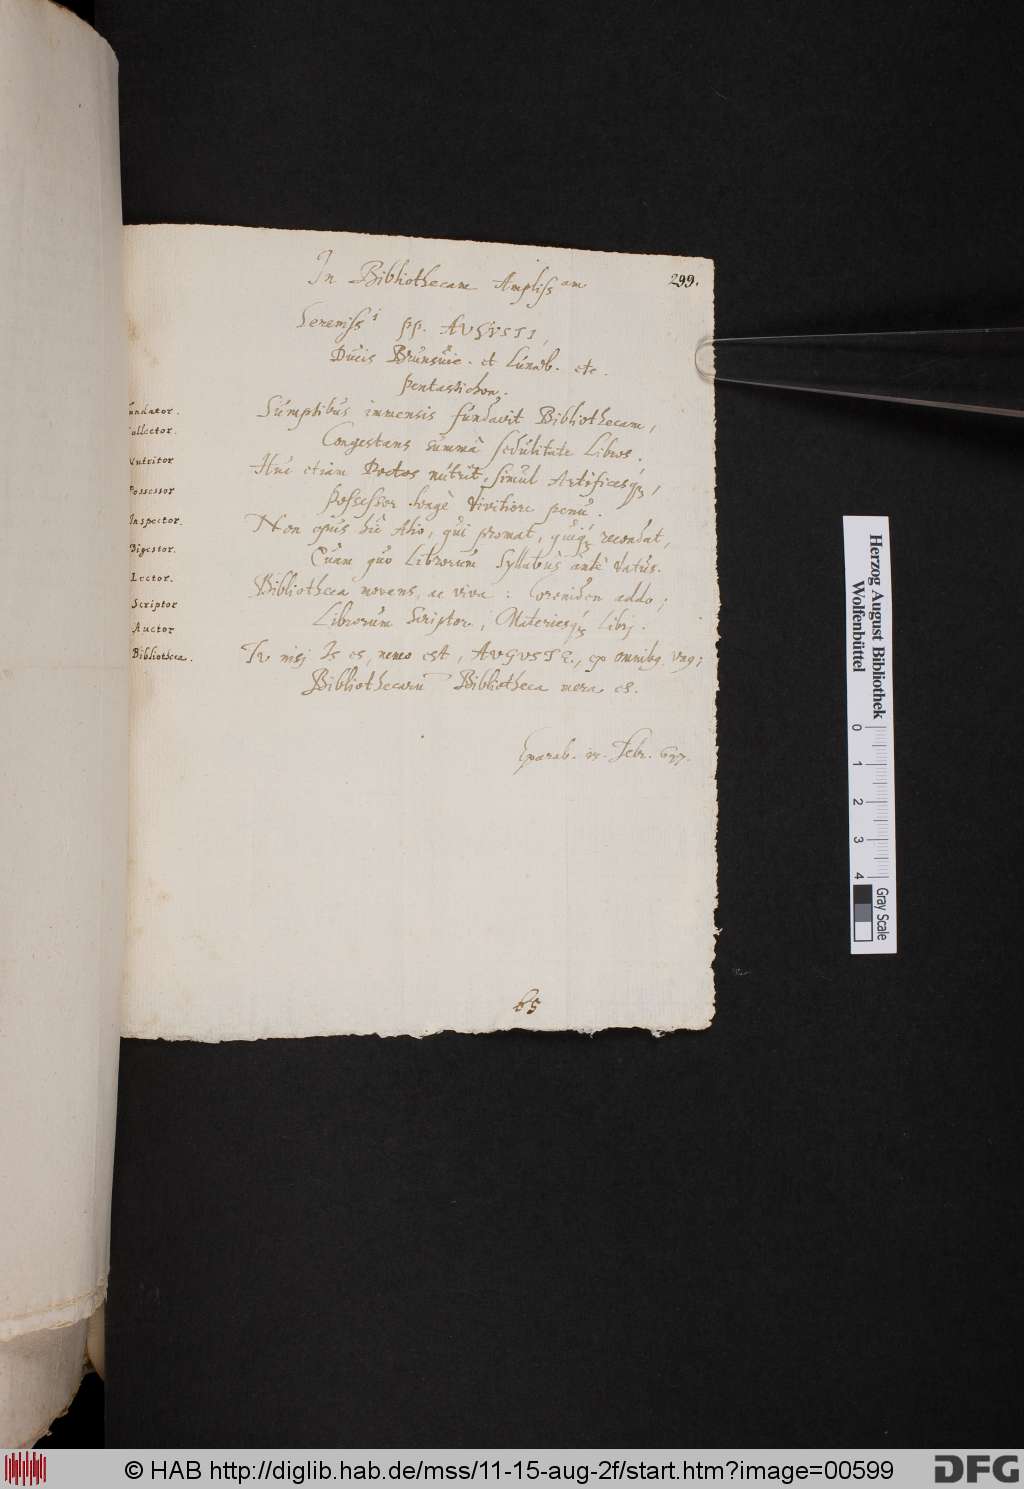 299.
In Bibliothecam Ampliss am
Sereniss i PP. AUGUSTI,
Ducis Brunsuic. et Lunæb. etc.
Pentastichon.
Fundator. Sumptibus immensis fundavit Bibliothecam,
Collector. Congestans summâ sedulitate Libros.
Nutritor Huc etiam Doctos nutrit, simul Artificesq;,
Possessor Possessor longè divitiore penu.
Inspector. Non opus hîc Alio, qui promat, quiq; recondat,
Digestor. Quam quo Librorum Syllabus antè datus.
Lector. Bibliotheca movens, ac viva: Coroniden addo;
Scriptor Librorum Scriptor, Materiesq; Libri.
Auctor Tu nisi Is es, nemo est, AUGUSTE, ex omnibq vnq;
Bibliotheca. Bibliothecarũ Bibliotheca mera es.
Febr.
65
Herzog August Bibliothek
Wolfenbüttel
0 1 2 3 4
Gray Scale
© HAB http://diglib.hab.de/mss/11-15-aug-2f/start.htm?image=00599
DFG